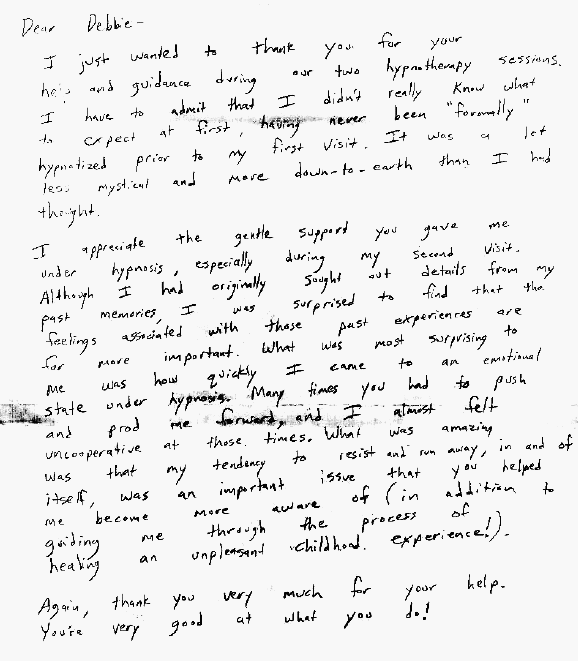 Dear Debbie-
I just wanted to thank you for your
help and guidance during our two hypnotherapy sessions.
I have to admit that I didn't really know what
to expect at first, having never been "formally"
hypnotized prior to my first visit. It was a lot
less mystical and more down-to-earth than I had
thought.
I appreciate the gentle support you gave me
under hypnosis, especially during my second visit.
Although I had originally sought out details from my
past memories, I was surprised to find that the
feelings associated with those past experiences are
far more important. What was most surprising to
me was how quickly I came to an emotional
state under hypnosis. Many times you had to push
and prod me forward, and I almost felt
uncooperative at those times. What was amazing
was that my tendency to resist and run away, in and of
itself, was an important issue that you helped
me become more aware of (in addition to
guiding me through the process of
healing an unpleasant childhood experience!).
Again, thank you very much for your help.
You're very good at what you do!